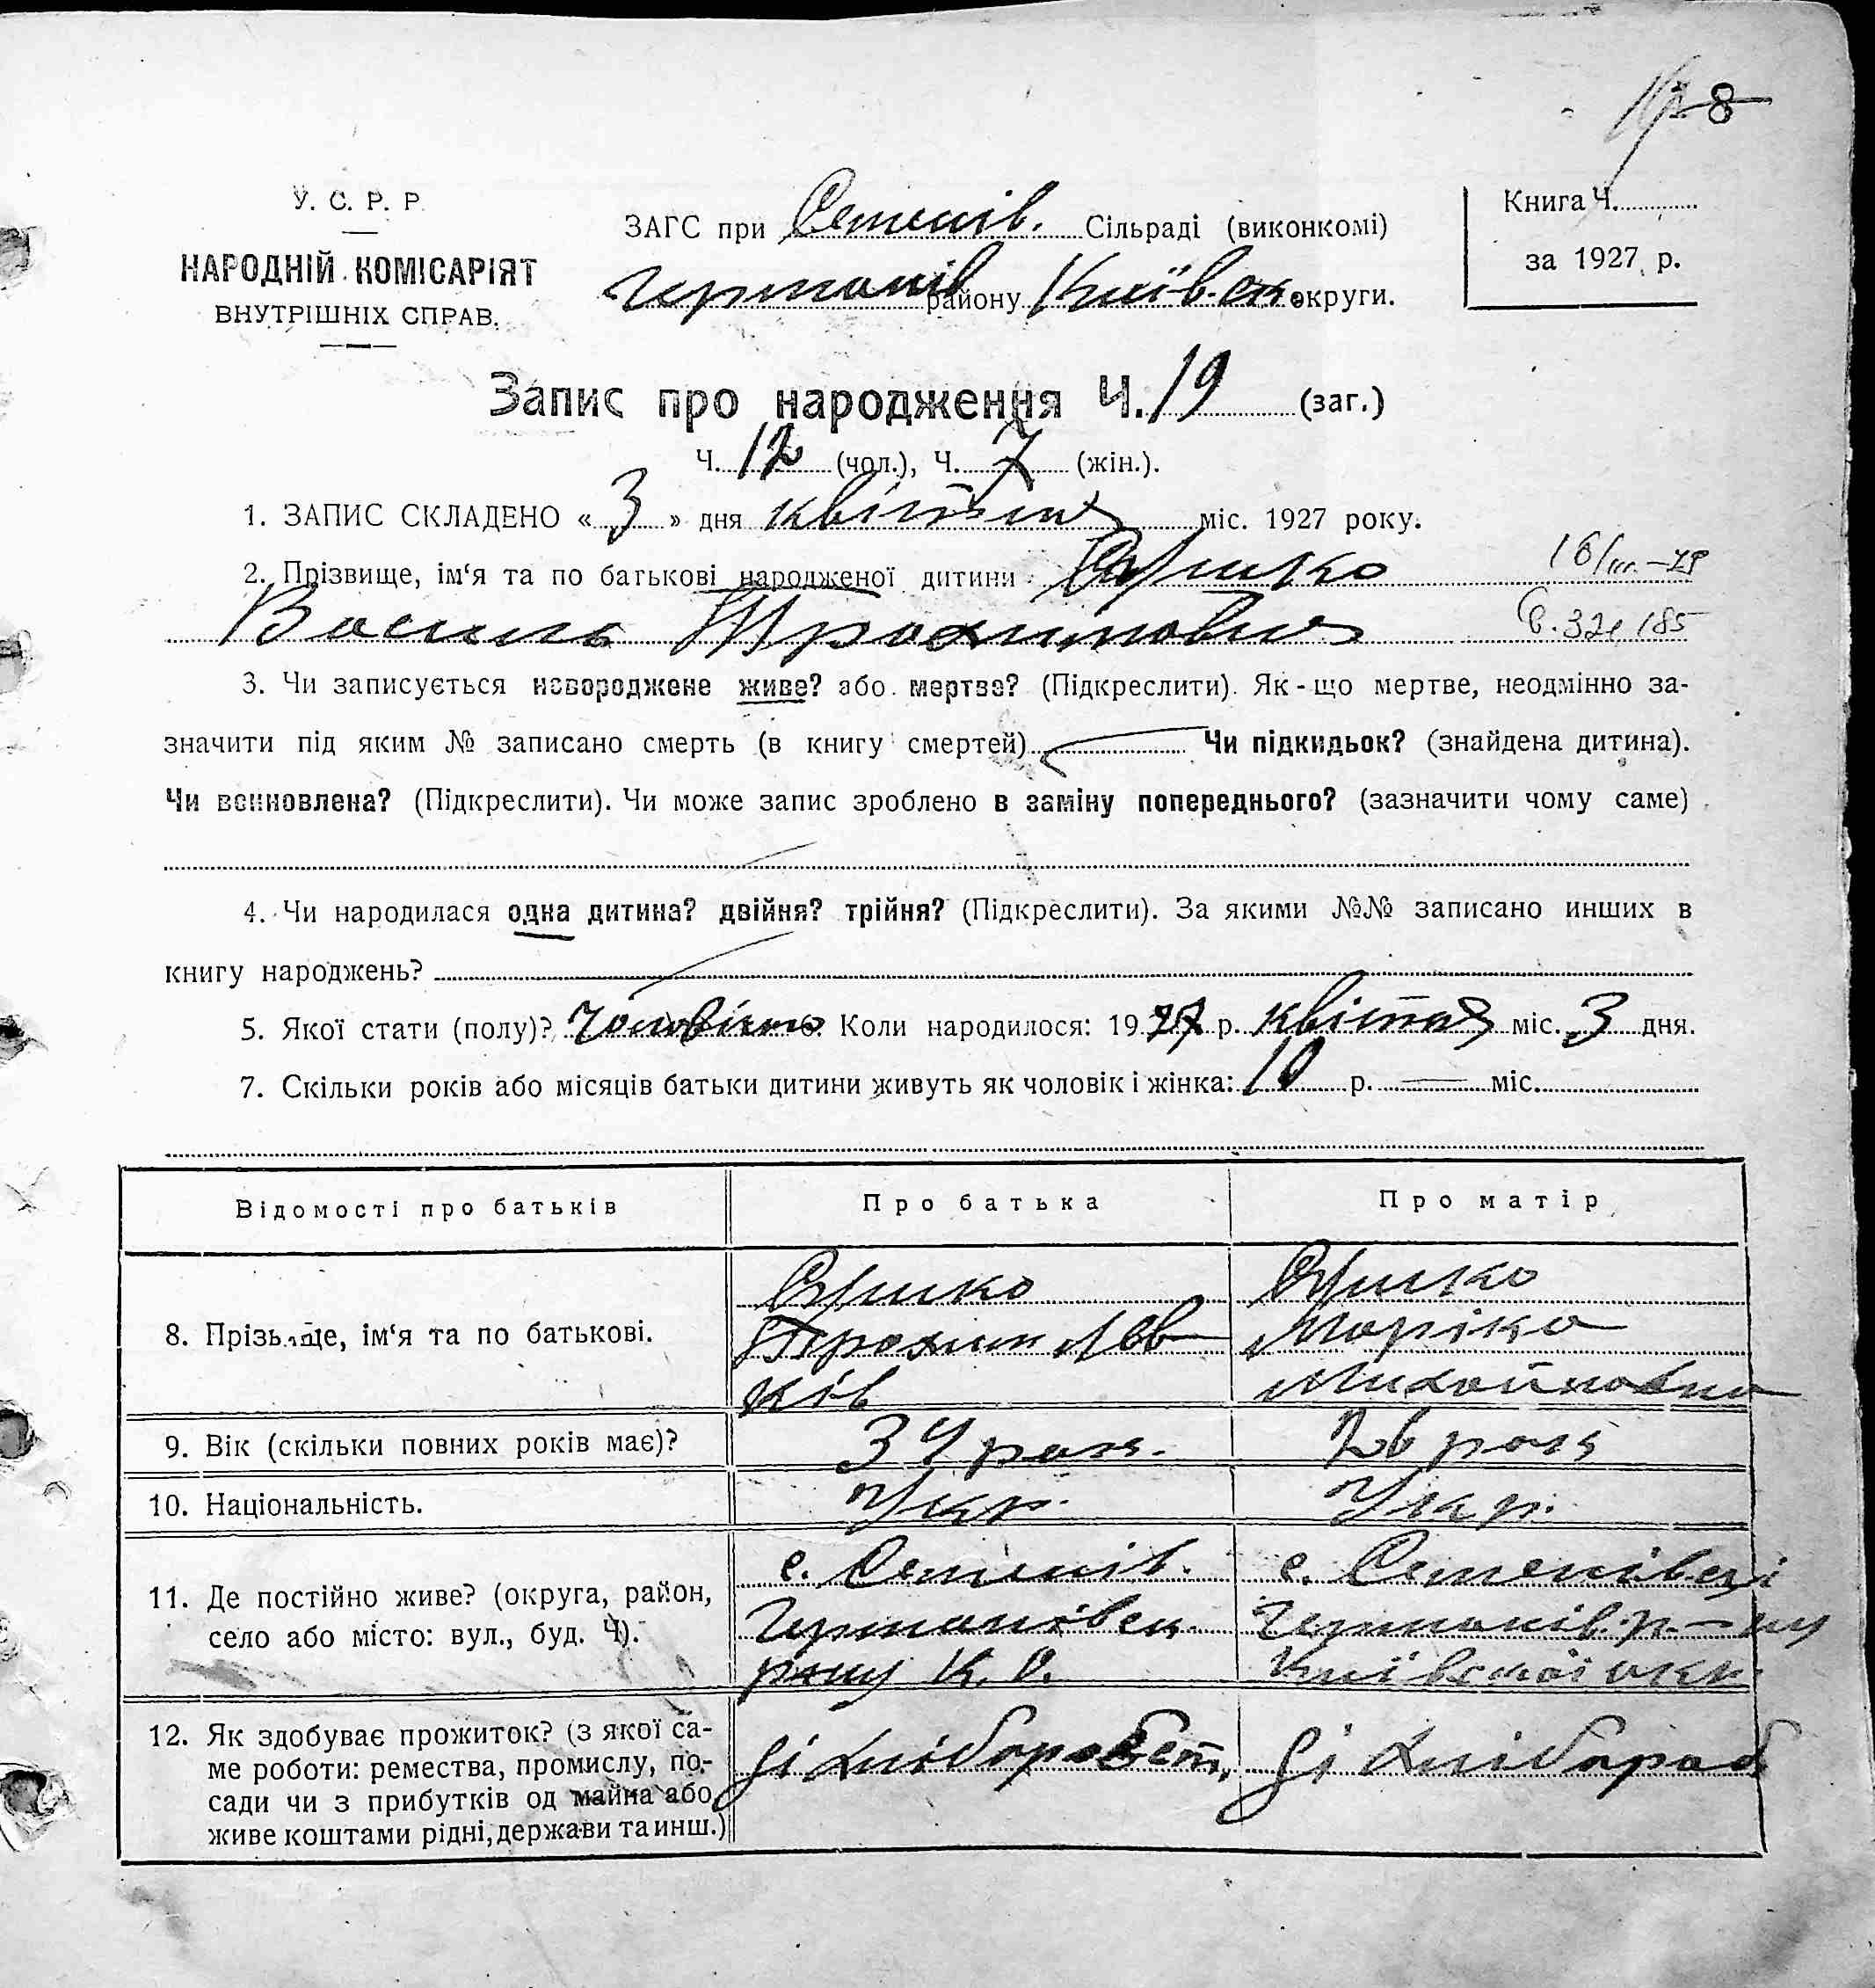 8
У. С. Р. Р.
НАРОДНІЙ КОМІСАРІЯТ
ВНУТРІШНІХ СПРАВ.
ЗАГС при Семенів. Сільраді (виконкомі)
Германів району Київ. ок. округи.
Книга Ч.
за 1927 р.
Запис про народження Ч. 19 (заг.)
Ч. 12 (чол.), Ч. 7 (жін.).
1. ЗАПИС СКЛАДЕНО « 3 » дня квітня міс. 1927 року.
2. Прізвище, ім‘я та по батькові народженої дитини
Василь Трохимович
3. Чи записується новороджене живе? або мертве? (Підкреслити). Як-що мертве, неодмінно за-
значити під яким № записано смерть (в книгу смертей) Чи підкидьок? (знайдена дитина).
Чи всиновлена? (Підкреслити). Чи може запис зроблено в заміну попереднього? (зазначити чому саме)
4. Чи народилася одна дитина? двійня? трійня? (Підкреслити). За якими №№ записано инших в
книгу народжень?
5. Якої стати (полу)? Коли народилося: 1927 р. квітня міс. 3 дня.
7. Скільки років або місяців батьки дитини живуть як чоловік і жінка: 10 р. — міс.
Відомості про батьків
Про батька
Про матір
8. Прізвище, ім‘я та по батькові.
Трохим Лев
ків
Маріка
Михайловна
9. Вік (скільки повних років має)?
34 рок.
26 рок
10. Національність.
Укр.
Укр.
11. Де постійно живе? (округа, район,
село або місто: вул., буд. Ч).
с. Семенів.
Германівец.
р-ну К. О.
с. Семенівці
Германів. р-ну
Київської окр
12. Як здобуває прожиток? (з якої са-
ме роботи: ремества, промислу, по-
сади чи з прибутків од майна або
живе коштами рідні, держави та инш.)
зі хліборобст.
зі хлібороб